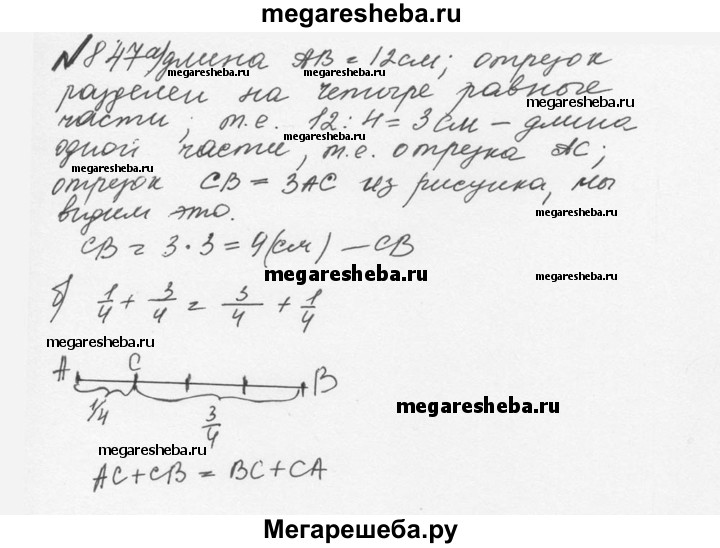 megaresheba.ru
№847а) длина АВ = 12см; отрезок
megaresheba.ru megaresheba.ru
разделен на четыре равные
megaresheba.ru
части; т.е. 12:4=3см – длина
megaresheba.ru
одной части, т.е. отрезка АС;
megaresheba.ru
отрезок СВ = 3АС из рисунка, мы
видим это.
megaresheba.ru
СВ = 3·3=9(см) – СВ
megaresheba.ru megaresheba.ru
б) 1/4 + 3/4 = 3/4 + 1/4
megaresheba.ru megaresheba.ru
А С В
1/4 3/4
megaresheba.ru
megaresheba.ru
АС+СВ = ВС+СА
Мегарешеба.ру